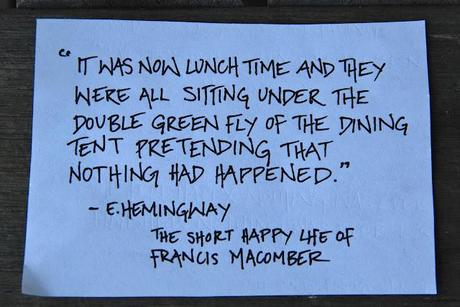 "IT WAS NOW LUNCH TIME AND THEY
WERE ALL SITTING UNDER THE
DOUBLE GREEN FLY OF THE DINING
TENT PRETENDING THAT
NOTHING HAD HAPPENED."
- E.HEMINGWAY
THE SHORT HAPPY LIFE OF
FRANCIS MACOMBER